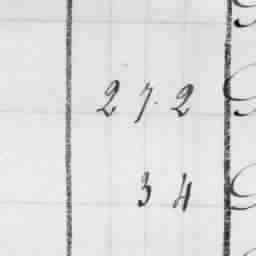 272
34